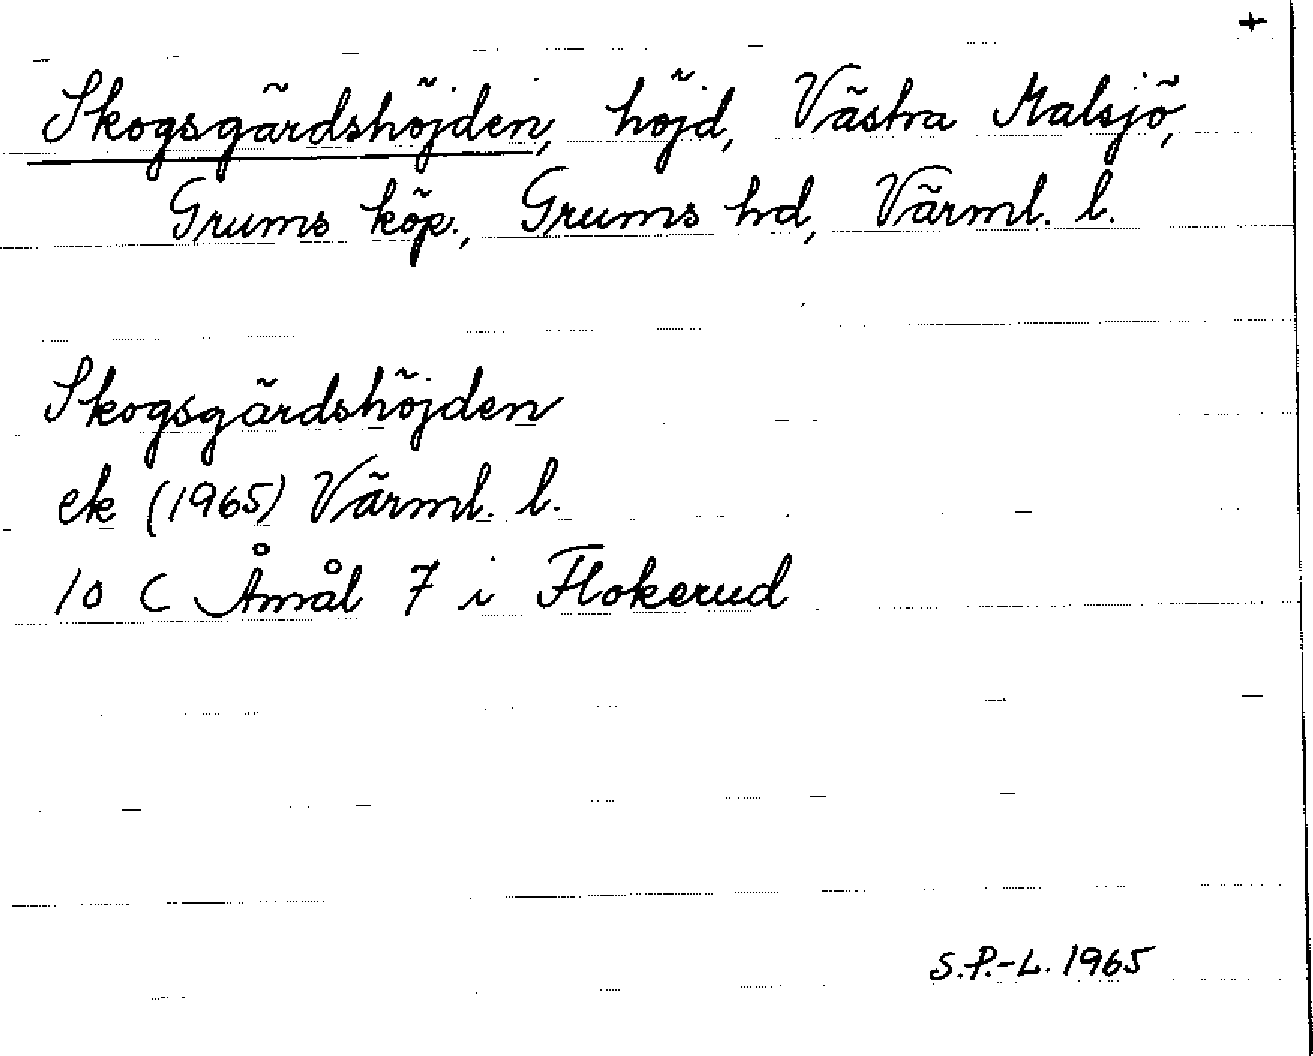 +
Skogsgärdshöjden, höjd, Västra Malsjö,
Grums köp., Grums hd, Värml. l.
Skogsgärdshöjden
ek (1965) Värml. l.
10 C Åmål 7 i Flokerud
S.P.-L. 1965